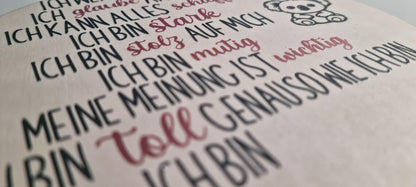 ICH
ICH glaube
ICH KANN ALLES schaffen
ICH BIN stark
ICH BIN stolz AUF MICH
ICH BIN mutig
MEINE MEINUNG IST wichtig
ICH BIN toll GENAUSO WIE ICH BIN
ICH BIN